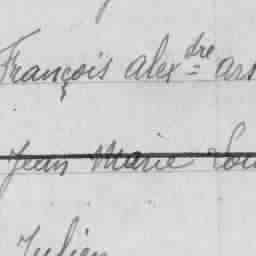 François Alexdre ars
Jean Marie Lou
Julien